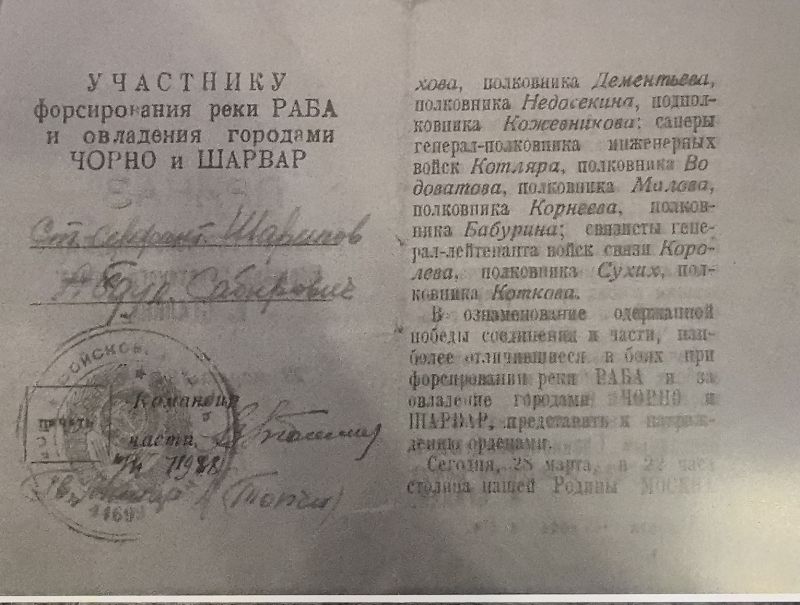 УЧАСТНИКУ
форсирования реки РАБА
и овладения городами
ЧОРНО и ШАРВАР
Ст. сержант Шарипов
Сабирович
ВОЙСКОВ
печать
Командир
части
хова, полковника Дементьева,
полковника Недосекина, подпол-
ковника Кожевникова; саперы
генерал-полковника инженерных
войск Котляра, полковника Во
доватова, полковника Милова,
полковника Корнеева, полков-
ника Бабурина; связисты гене-
рал-лейтенанта войск связи Коро-
лева, полковника Сухих, пол-
ковника Коткова.
В ознаменование одержанной
победы соединения и части, наи-
более отличившиеся в боях при
форсировании реки РАБА и за
овладение городами ЧОРНО и
ШАРВАР, представить к награж-
дению орденами.
Сегодня, 28 марта, в 22 час
столица нашей Родины МОСКВА